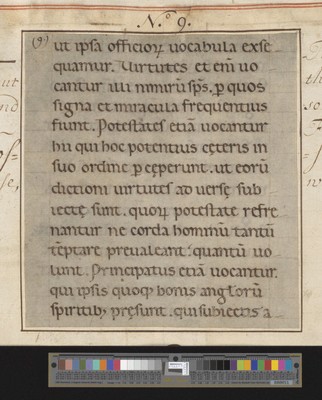 N.º 9.
(9) ut ipsa officioꝝ uocabula exse
quamur. Uirtutes et em̄ uo
cantur illi nimirū sp̄s. ꝑ quos
signa et miracula frequentius
fiunt. Potestates etiā uocantur
hii qui hoc potentius cęteris in
suo ordine ꝑceperunt. ut eorū
dictioni uirtutes aduersę sub
iectę sunt. quoꝝ potestate refre
nantur ne corda hominū tantū
tēptare preualeant. quantū uo
lunt. Principatus etiā uocantur.
qui ipsis quoqꝫ bonis angłorū
spiritibꝫ pręsunt. qui subiectis a